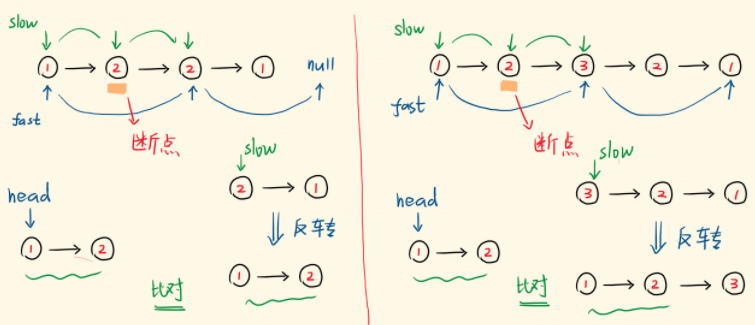 slow
1 → 2 → 2 → 1 null
fast
断点
slow
2 → 1
head
反转
1 → 2
1 → 2
比对
slow
1 → 2 → 3 → 2 → 1
fast
断点
slow
3 → 2 → 1
head
反转
1 → 2
1 → 2 → 3
比对